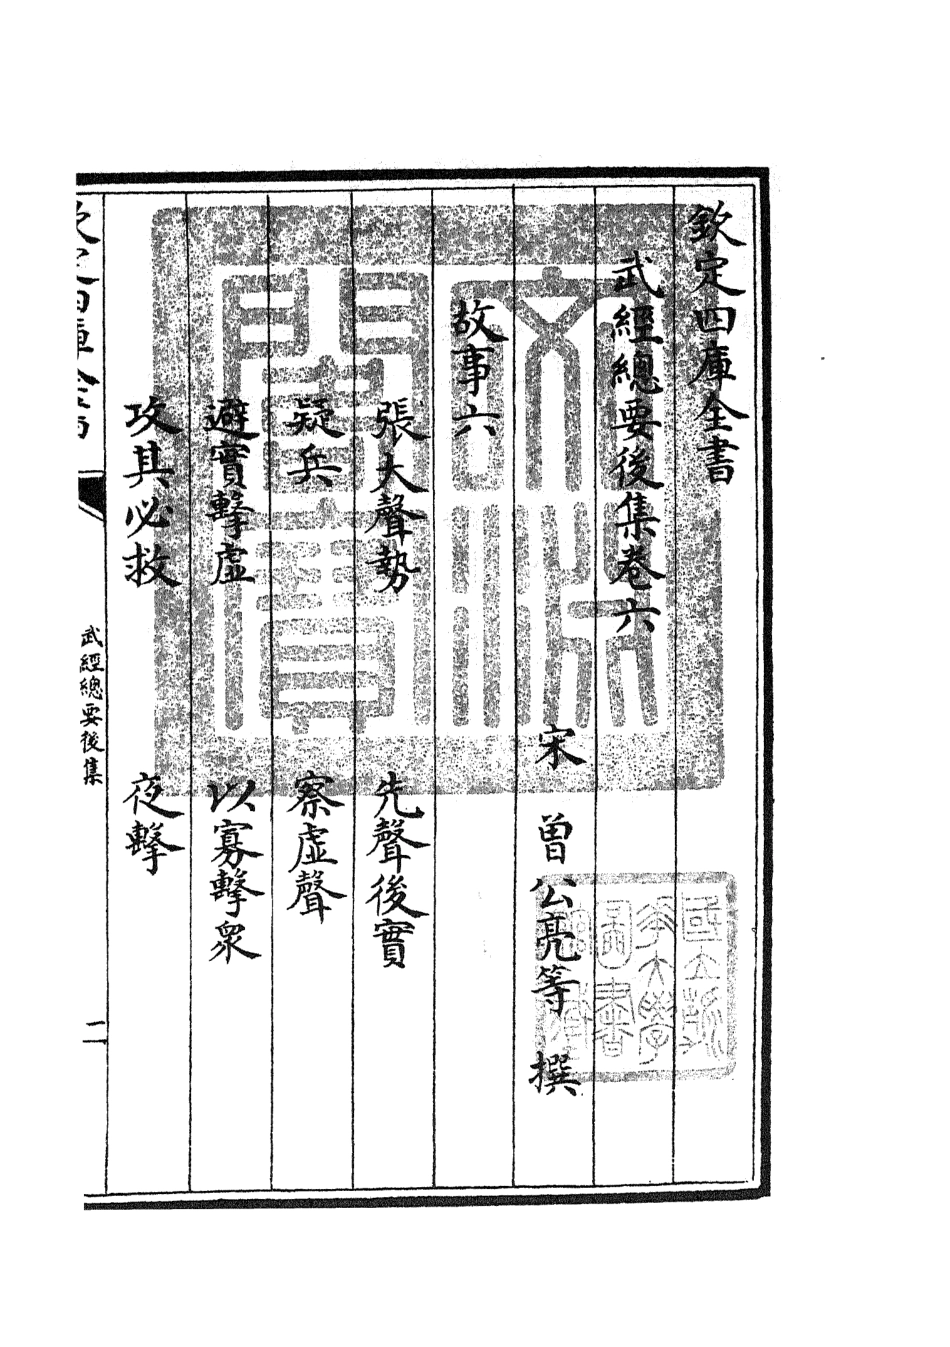 欽定四庫全書
武經總要後集卷六
宋 曾公亮等 撰
故事六
張大聲勢 先聲後實
疑兵 察虛聲
避實擊虛 以寡擊衆
攻其必救 夜擊
欽定四庫全書
武經總要後集
二
文淵閣寶
國立
大學
圖書